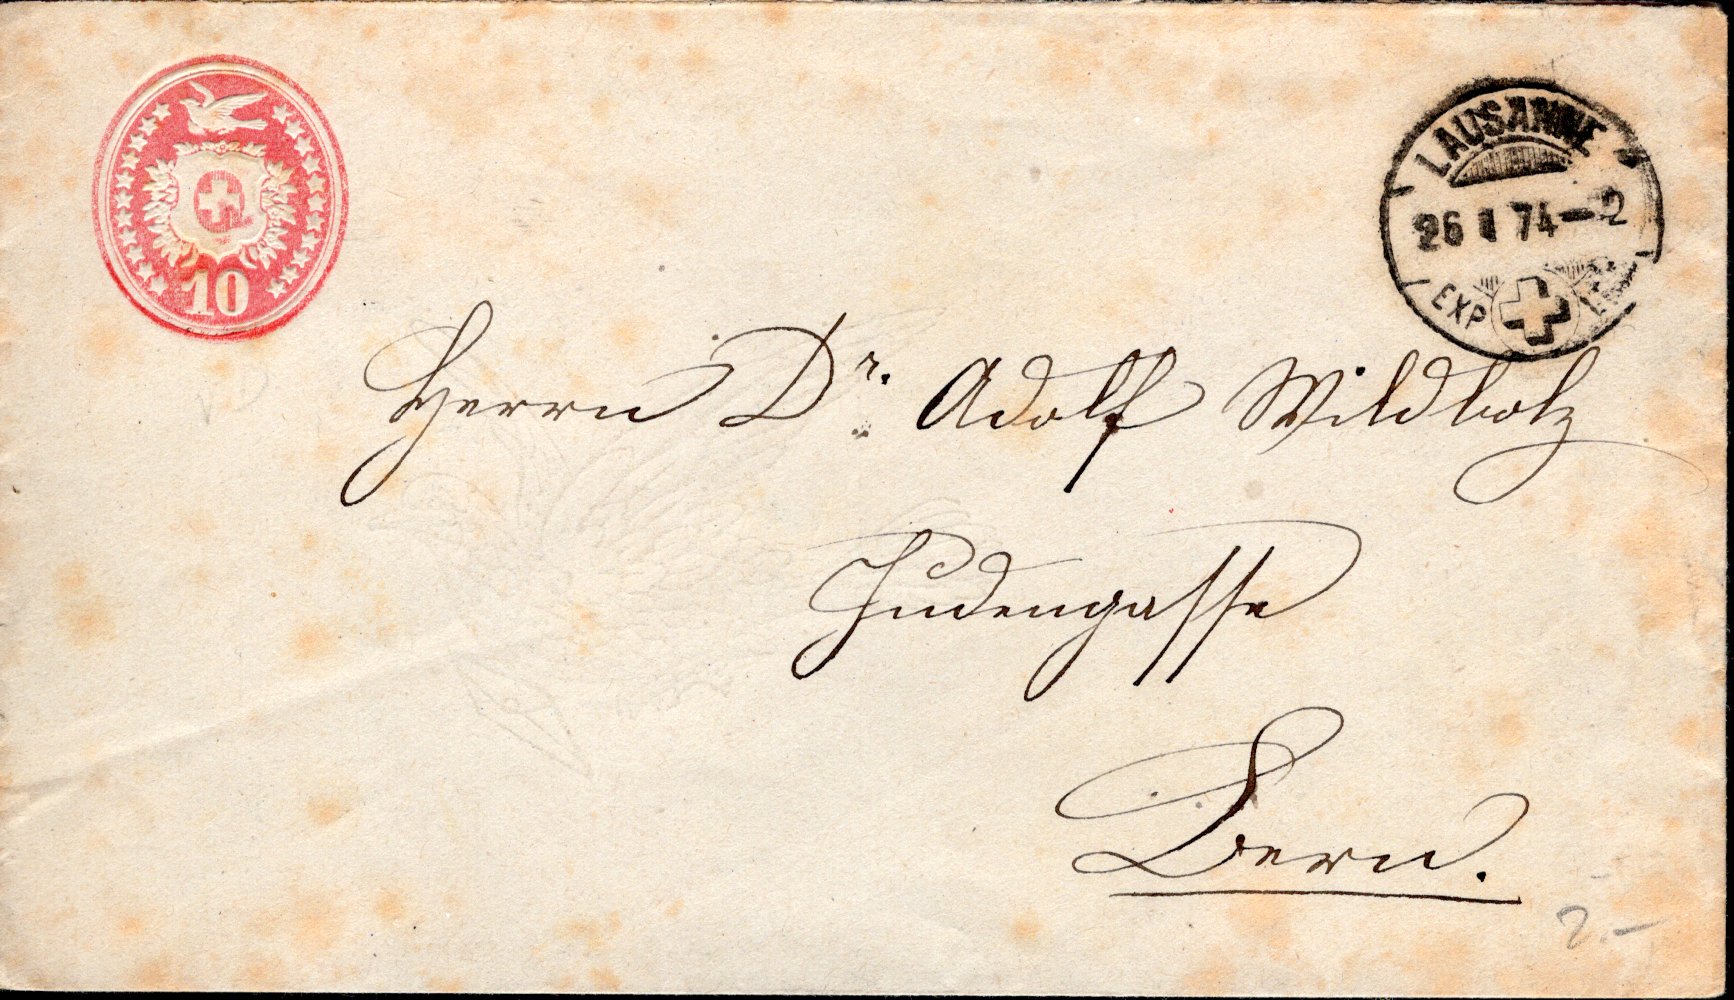 10
LAUSANNE
26 I 74-2
EXP
Herrn Dr. Adolf Wildbolz
Judengasse
Bern.
2.-